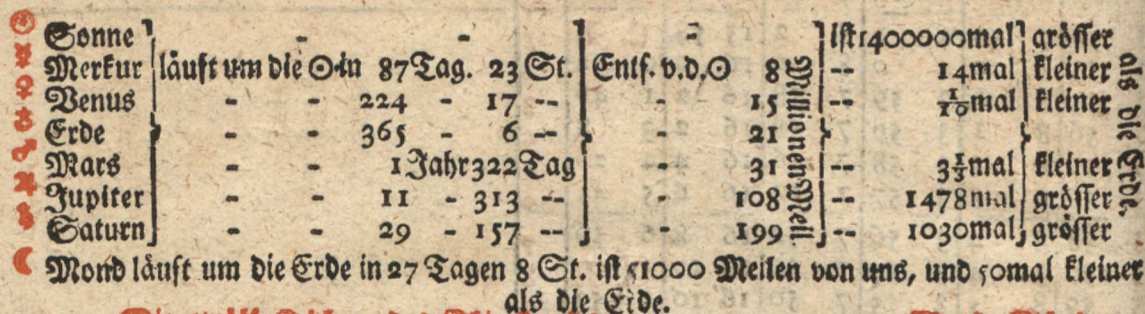 ☉ Sonne - - - ist 1400000mal grösser
☿ Merkur läuft um die ☉ in 87 Tag. 23 St. Entf. v. d. ☉ 8 -- 14mal kleiner
♀ Venus - - 224 - 17 -- - 15 -- 1/10mal kleiner
♁ Erde - - 365 - 6 -- - 21
♂ Mars - - 1 Jahr 322 Tag - 31 -- 3 1/3mal kleiner
♃ Jupiter - - 11 - 313 -- - 108 -- 1478mal grösser
♄ Saturn - - 29 - 157 -- - 199 -- 1030mal grösser
Millionen Meil.
als die Erde.
☾ Mond läuft um die Erde in 27 Tagen 8 St. ist 51000 Meilen von uns, und 50mal kleiner
als die Erde.